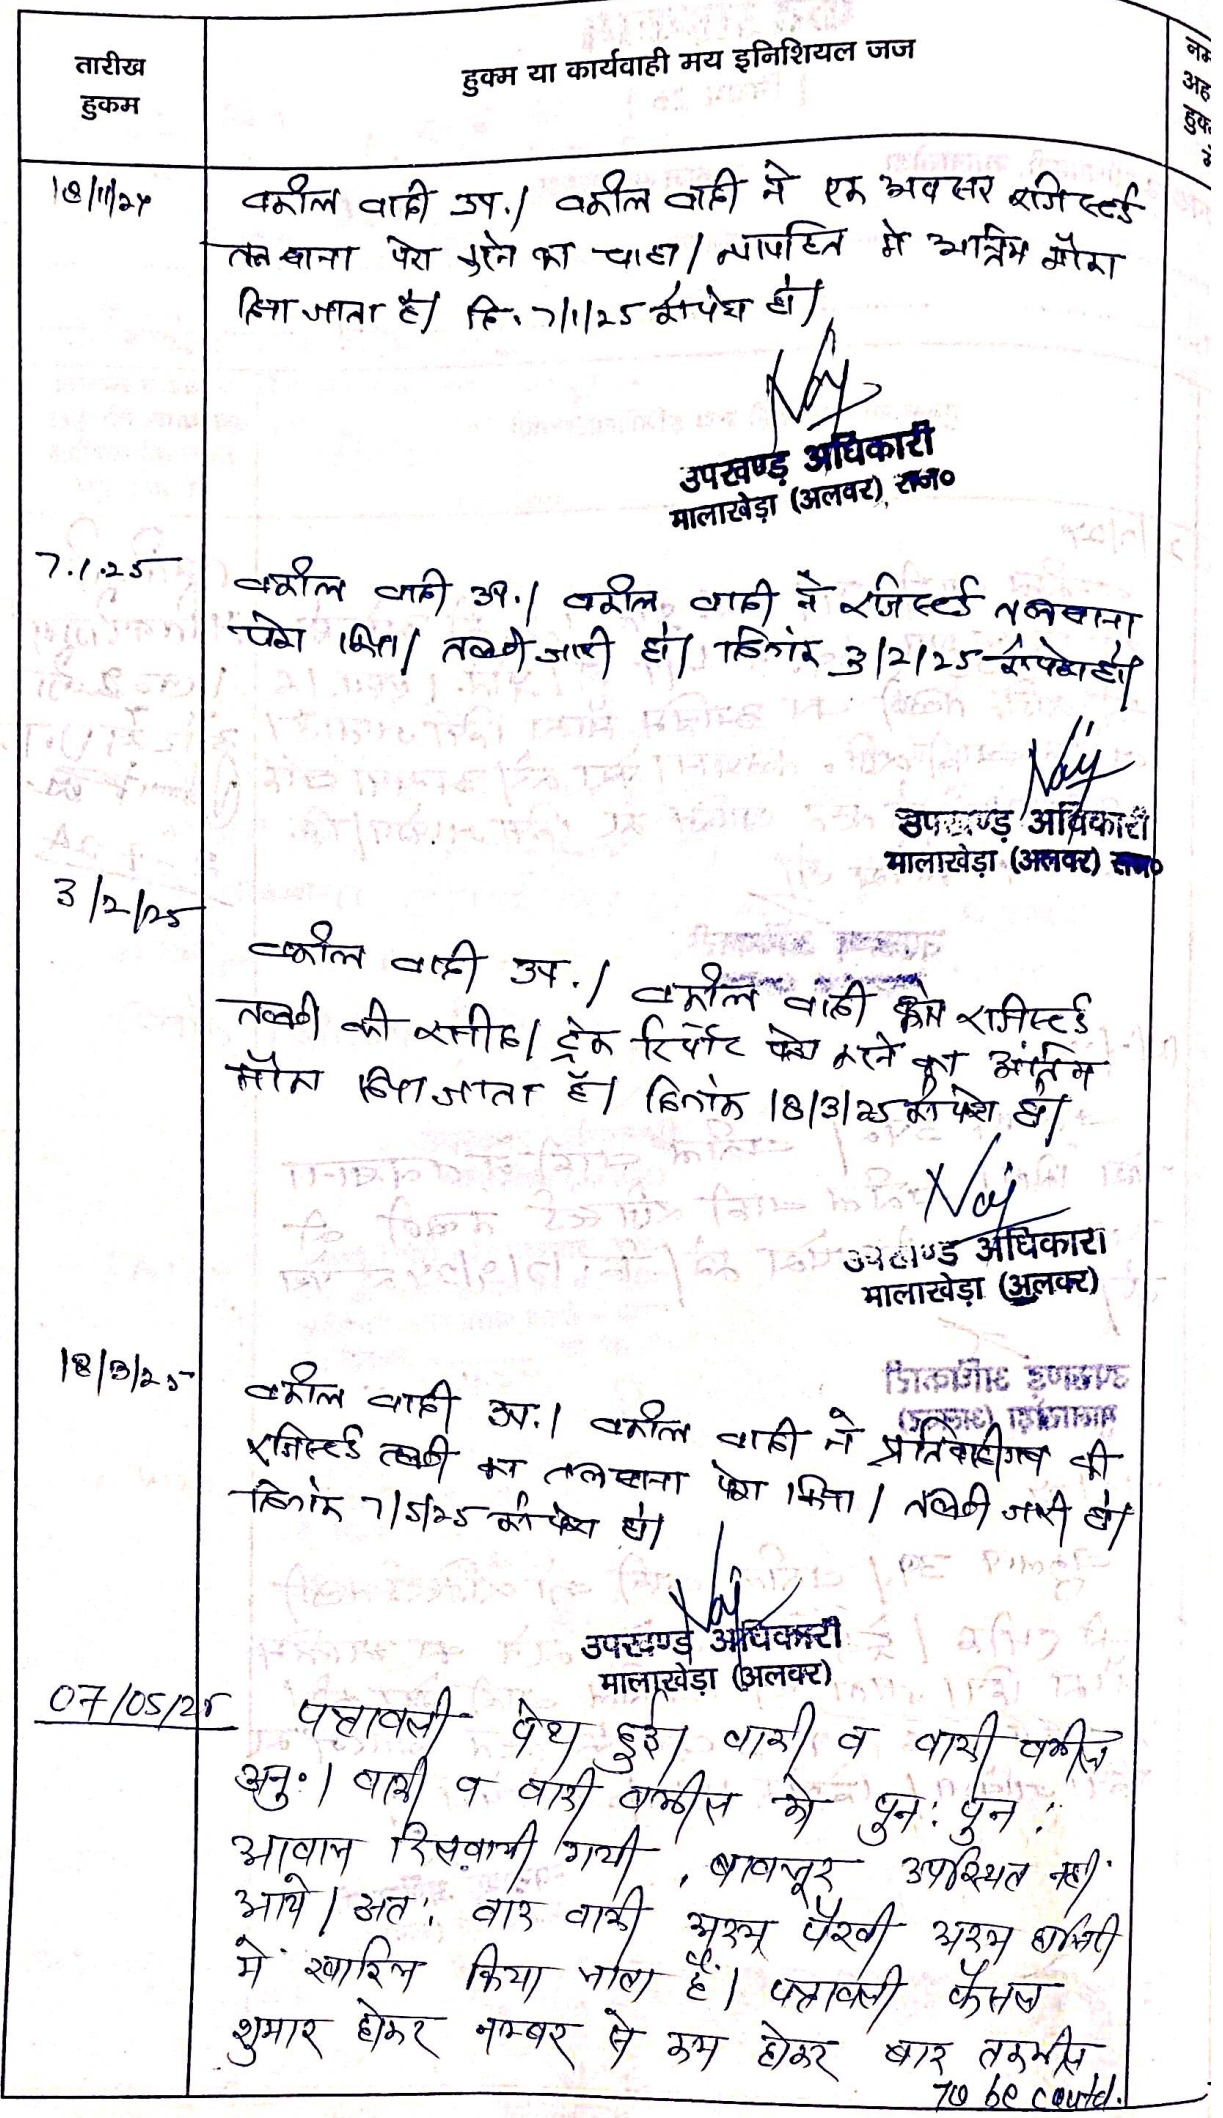 तारीख
हुकम
हुक्म या कार्यवाही मय इनिशियल जज
18/11/24
वकील वादी उप.। वकील वादी ने एक अवसर रजिस्टर्ड
तलबाना पेश करने का चाहा। न्यायहित मे अन्तिम मौका
दिया जाता है। दि. 7/1/25 को पेश हो।
उपखण्ड़ अधिकारी
मालाखेड़ा (अलवर), राज०
7.1.25
वकील वादी उप.। वकील वादी ने रजिस्टर्ड तलबाना
पेश किया। तलबी जारी हो। दिनांक 3/2/25 को पेश हो।
उपखण्ड़ अधिकारी
मालाखेड़ा (अलवर) राज०
3/2/25
वकील वादी उप.। वकील वादी को रजिस्टर्ड
तलबी की रसीद। ट्रेक रिपोर्ट पेश करने का अंतिम
मौका दिया जाता है। दिनांक 18/3/25 को पेश हो।
उपखण्ड अधिकारी
मालाखेड़ा (अलवर)
18/3/25
वकील वादी उप.। वकील वादी ने प्रतिवादीगण की
रजिस्टर्ड तलबी का तलबाना पेश किया। तलबी जारी हो।
दिनांक 7/5/25 को पेश हो।
उपखण्ड अधिकारी
मालाखेड़ा (अलवर)
07/05/25
पत्रावली पेश हुई। वादी व वादी वकील
अनु.। वादी व वादी वकील को पुनः पुनः
आवाज दिलवायी गयी, बावजूद उपस्थित नही
आये। अतः वाद वादी अदम पैरवी अदम हाजिरी
मे खारिज किया जाता है। पत्रावली फैसल
शुमार होकर नम्बर से कम होकर बाद तकमील
To be contd.